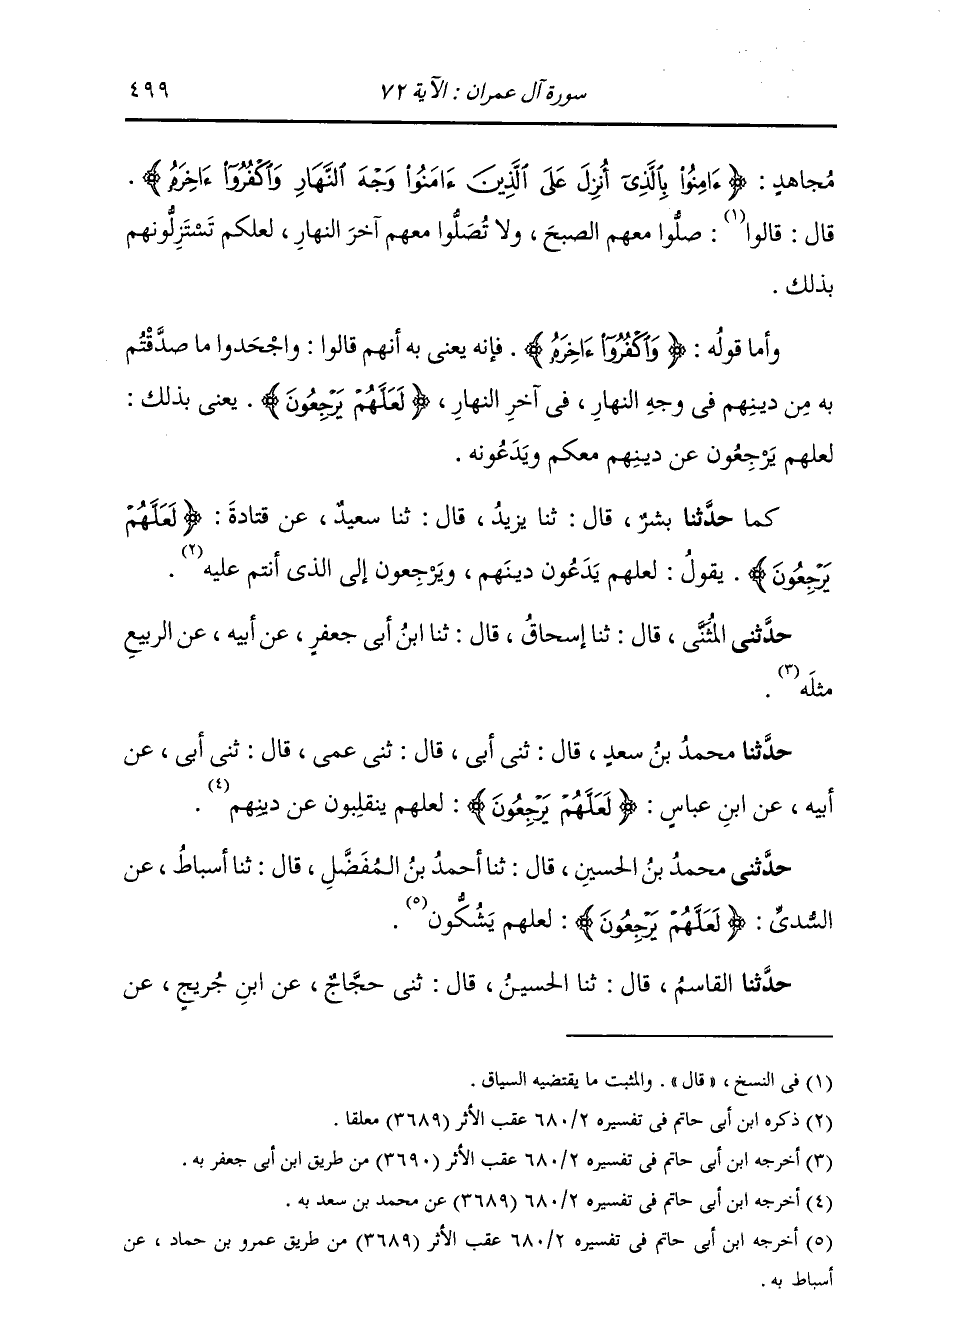 سورة آل عمران : الآية ٧٢ ٤٩٩
مُجاهدٍ : ﴿ ءَامِنُوا۟ بِٱلَّذِىٓ أُنزِلَ عَلَى ٱلَّذِينَ ءَامَنُوا۟ وَجْهَ ٱلنَّهَارِ وَٱكْفُرُوٓا۟ ءَاخِرَهُ ﴾ .
قال : قالوا(١) : صلُّوا معهم الصبحَ ، ولا تُصَلُّوا معهم آخرَ النهارِ ، لعلكم تَسْتَزِلُّونهم
بذلك .
وأما قولُه : ﴿ وَٱكْفُرُوٓا۟ ءَاخِرَهُ ﴾ . فإنه يعنى به أنهم قالوا : واجْحَدوا ما صدَّقْتُم
به مِن دينِهم فى وجهِ النهارِ ، فى آخرِ النهارِ ، ﴿ لَعَلَّهُمْ يَرْجِعُونَ ﴾ . يعنى بذلك :
لعلهم يَرْجِعُون عن دينِهم معكم ويَدَعُونه .
كما حدَّثنا بشرٌ ، قال : ثنا يزيدُ ، قال : ثنا سعيدٌ ، عن قتادةَ : ﴿ لَعَلَّهُمْ
يَرْجِعُونَ ﴾ . يقولُ : لعلهم يَدَعُون دينَهم ، ويَرْجِعون إلى الذى أنتم عليه(٢) .
حدَّثنى المُثَنَّى ، قال : ثنا إسحاقُ ، قال : ثنا ابنُ أبى جعفرٍ ، عن أبيه ، عن الربيعِ
مثلَه(٣) .
حدَّثنا محمدُ بنُ سعدٍ ، قال : ثنى أبى ، قال : ثنى عمى ، قال : ثنى أبى ، عن
أبيه ، عن ابنِ عباسٍ : ﴿ لَعَلَّهُمْ يَرْجِعُونَ ﴾ : لعلهم ينقلِبون عن دينِهم(٤) .
حدَّثنى محمدُ بنُ الحسينِ ، قال : ثنا أحمدُ بنُ المُفَضَّلِ ، قال : ثنا أسباطُ ، عن
السُّدىِّ : ﴿ لَعَلَّهُمْ يَرْجِعُونَ ﴾ : لعلهم يَشُكُّون(٥) .
حدَّثنا القاسمُ ، قال : ثنا الحسينُ ، قال : ثنى حجَّاجٌ ، عن ابنِ جُريجٍ ، عن
(١) فى النسخ ، « قال » . والمثبت ما يقتضيه السياق .
(٢) ذكره ابن أبى حاتم فى تفسيره ٦٨٠/٢ عقب الأثر (٣٦٨٩) معلقا .
(٣) أخرجه ابن أبى حاتم فى تفسيره ٦٨٠/٢ عقب الأثر (٣٦٩٠) من طريق ابن أبى جعفر به .
(٤) أخرجه ابن أبى حاتم فى تفسيره ٦٨٠/٢ (٣٦٨٩) عن محمد بن سعد به .
(٥) أخرجه ابن أبى حاتم فى تفسيره ٦٨٠/٢ عقب الأثر (٣٦٨٩) من طريق عمرو بن حماد ، عن
أسباط به .